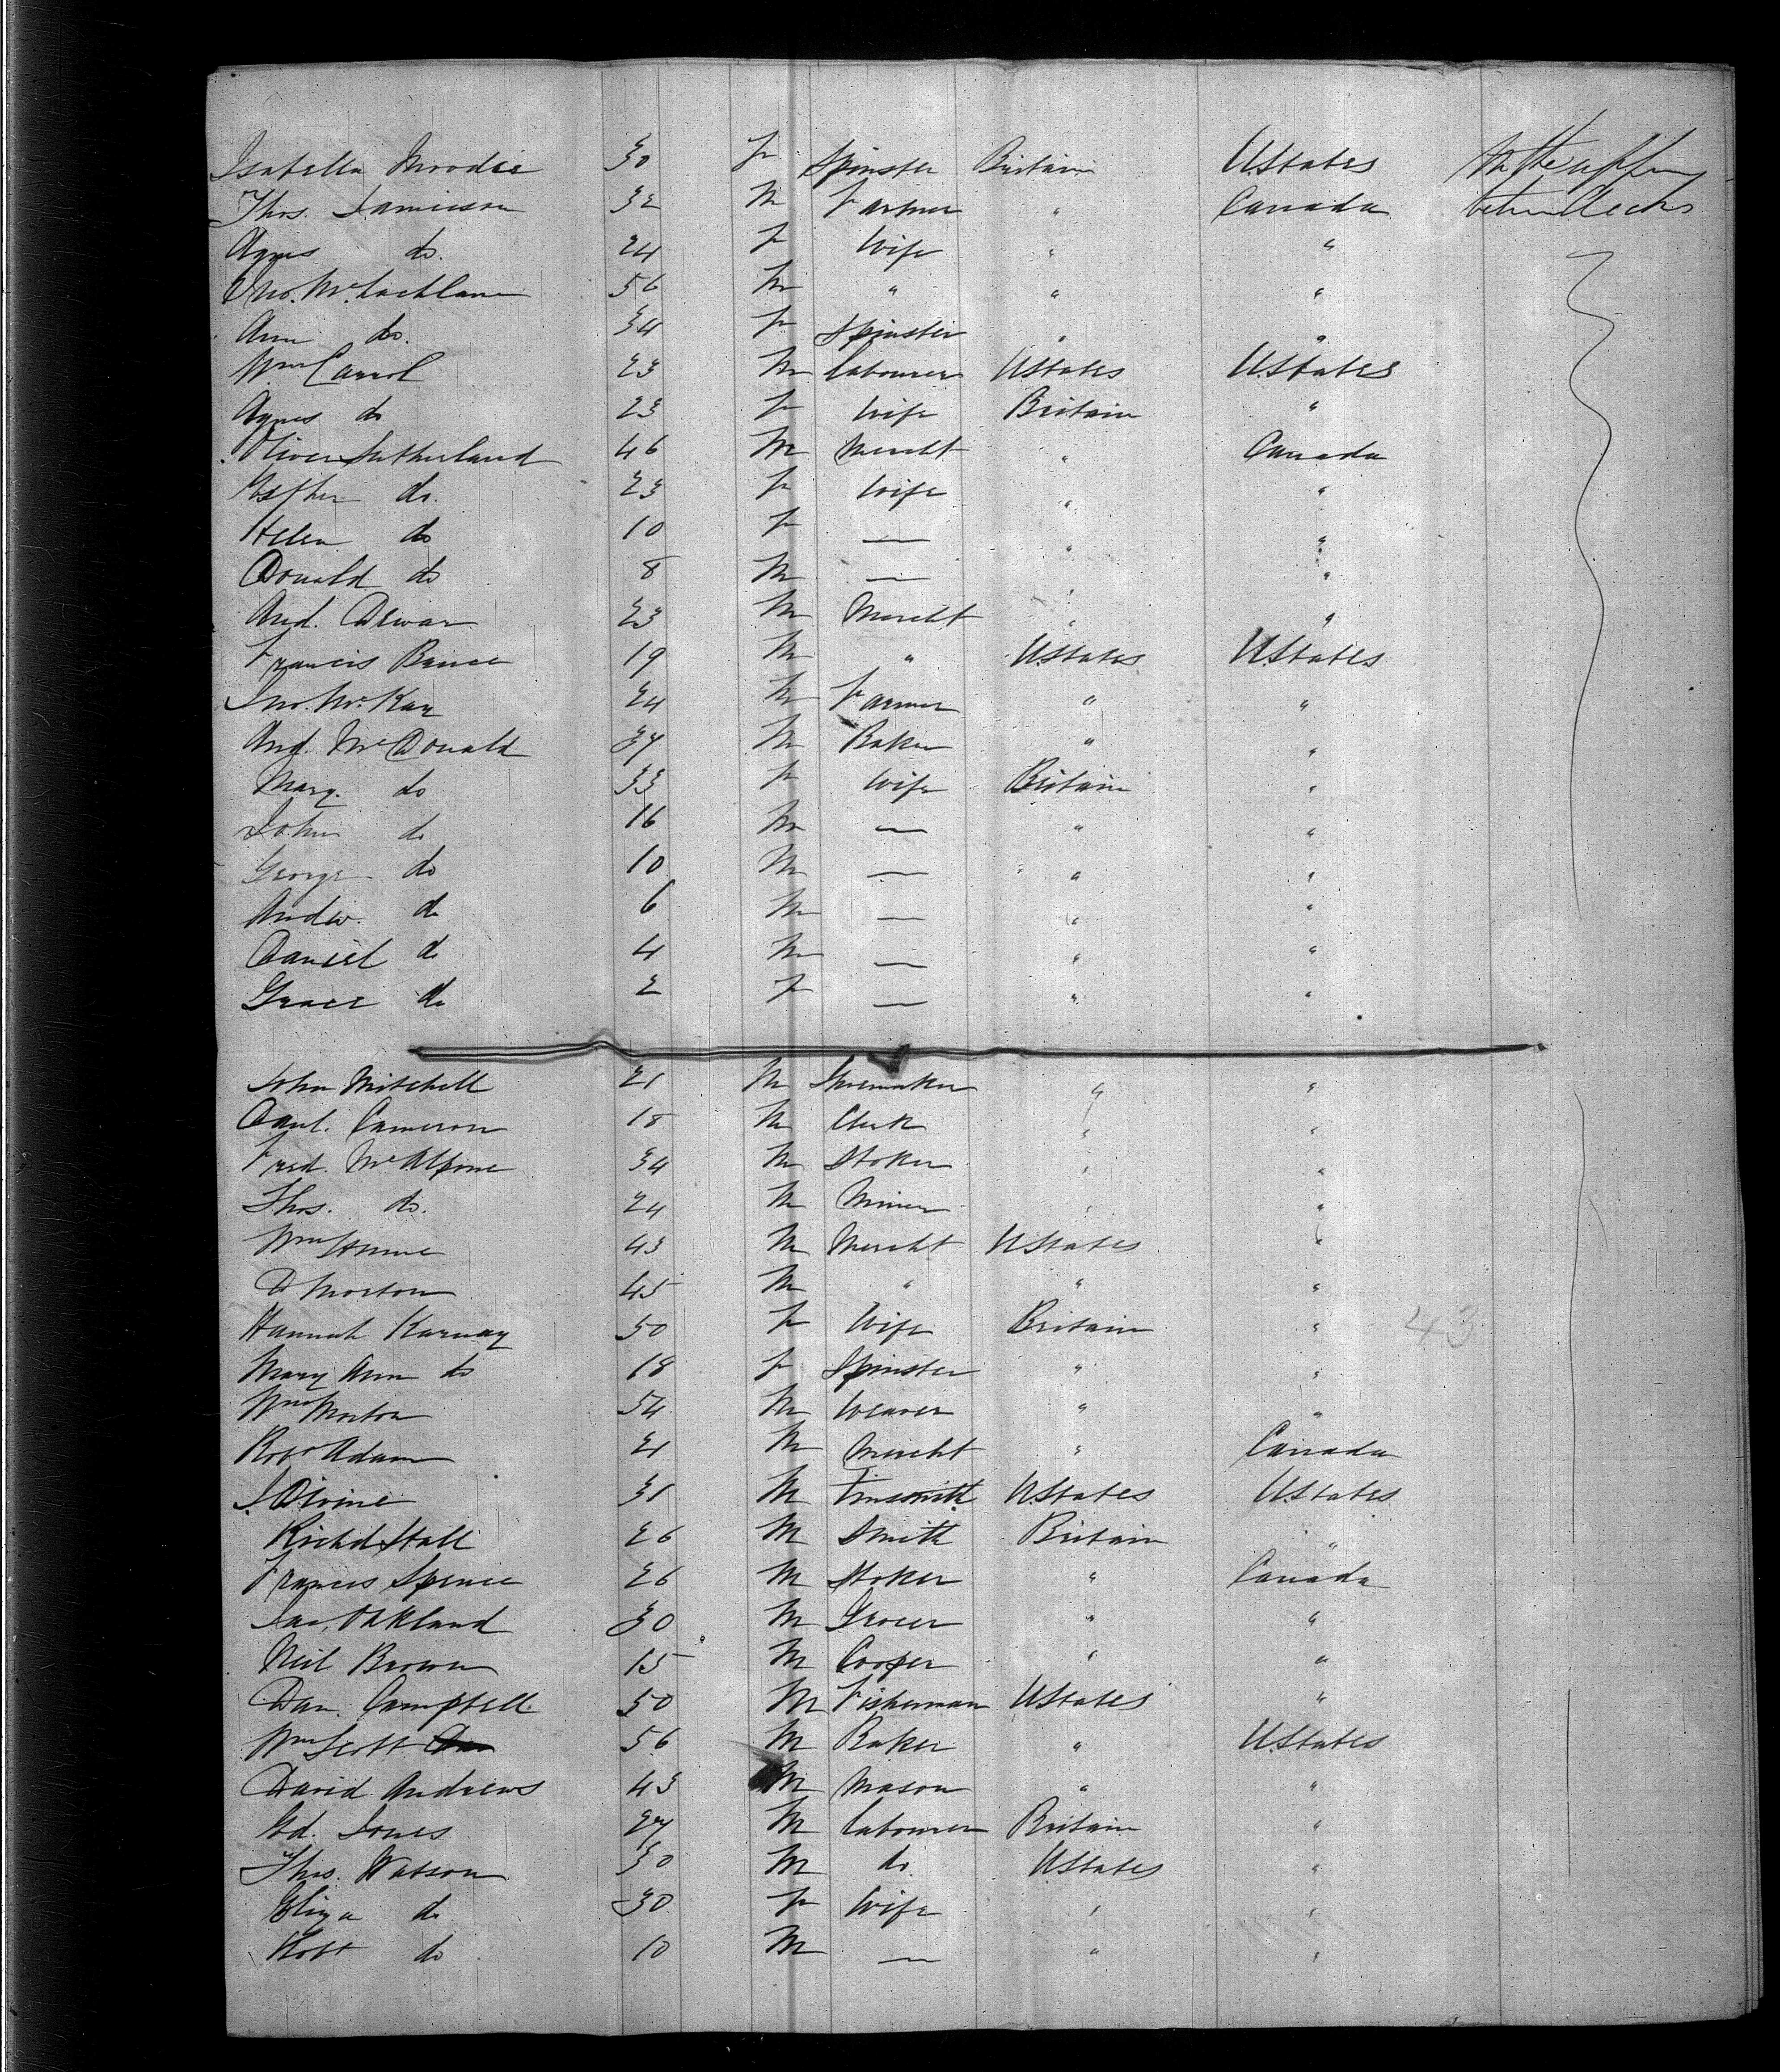 Isabella Moodie 30 F Spinster Britain UStates In the upper
Thos. Jamieson 32 M Farmer " Canada between decks
Agnes do. 24 F Wife " "
Jno. McLachlan 56 M " " "
Ann do. 34 F Spinster " "
Wm Carrol 23 M Labourer UStates UStates
Agnes do 23 F Wife Britain "
Oliver Sutherland 46 M Mercht " Canada
Esther do. 23 F Wife " "
Helen do 10 F — " "
Donald do 8 M — " "
And. Dewar 23 M Mercht " "
Francis Bruce 19 M " UStates UStates
Jno. McKay 24 M Farmer " "
And. McDonald 37 M Baker " "
Mary do 33 F Wife Britain "
John do 16 M — " "
George do 10 M — " "
Andw. do 6 M — " "
Daniel do 4 M — " "
Grace do 2 F — " "
John Mitchell 21 M Shoemaker " "
Danl. Cameron 18 M Clerk " "
Fred. McAlpine 34 M Stoker " "
Thos. do. 24 M Miner " "
Wm Hume 43 M Mercht UStates "
D Morton 45 M " " "
Hannah Karnay 50 F Wife Britain " 43
Mary Ann do 18 F Spinster " "
Wm Morton 54 M Weaver " "
Robt Adam 21 M Mercht " Canada
J. Divine 31 M Tinsmith UStates UStates
Richd Stall 26 M Smith Britain "
Francis Spence 26 M Stoker " Canada
Jas. Oakland 30 M Grocer " "
Neil Brown 15 M Cooper " "
Dan. Campbell 50 M Fisherman UStates "
Wm Scott 56 M Baker " UStates
David Andrews 43 M Mason " "
Ed. Jones 27 M Labourer Britain "
Thos. Watson 30 M do. UStates "
Eliza do 30 F Wife " "
Robt do 10 M — " "